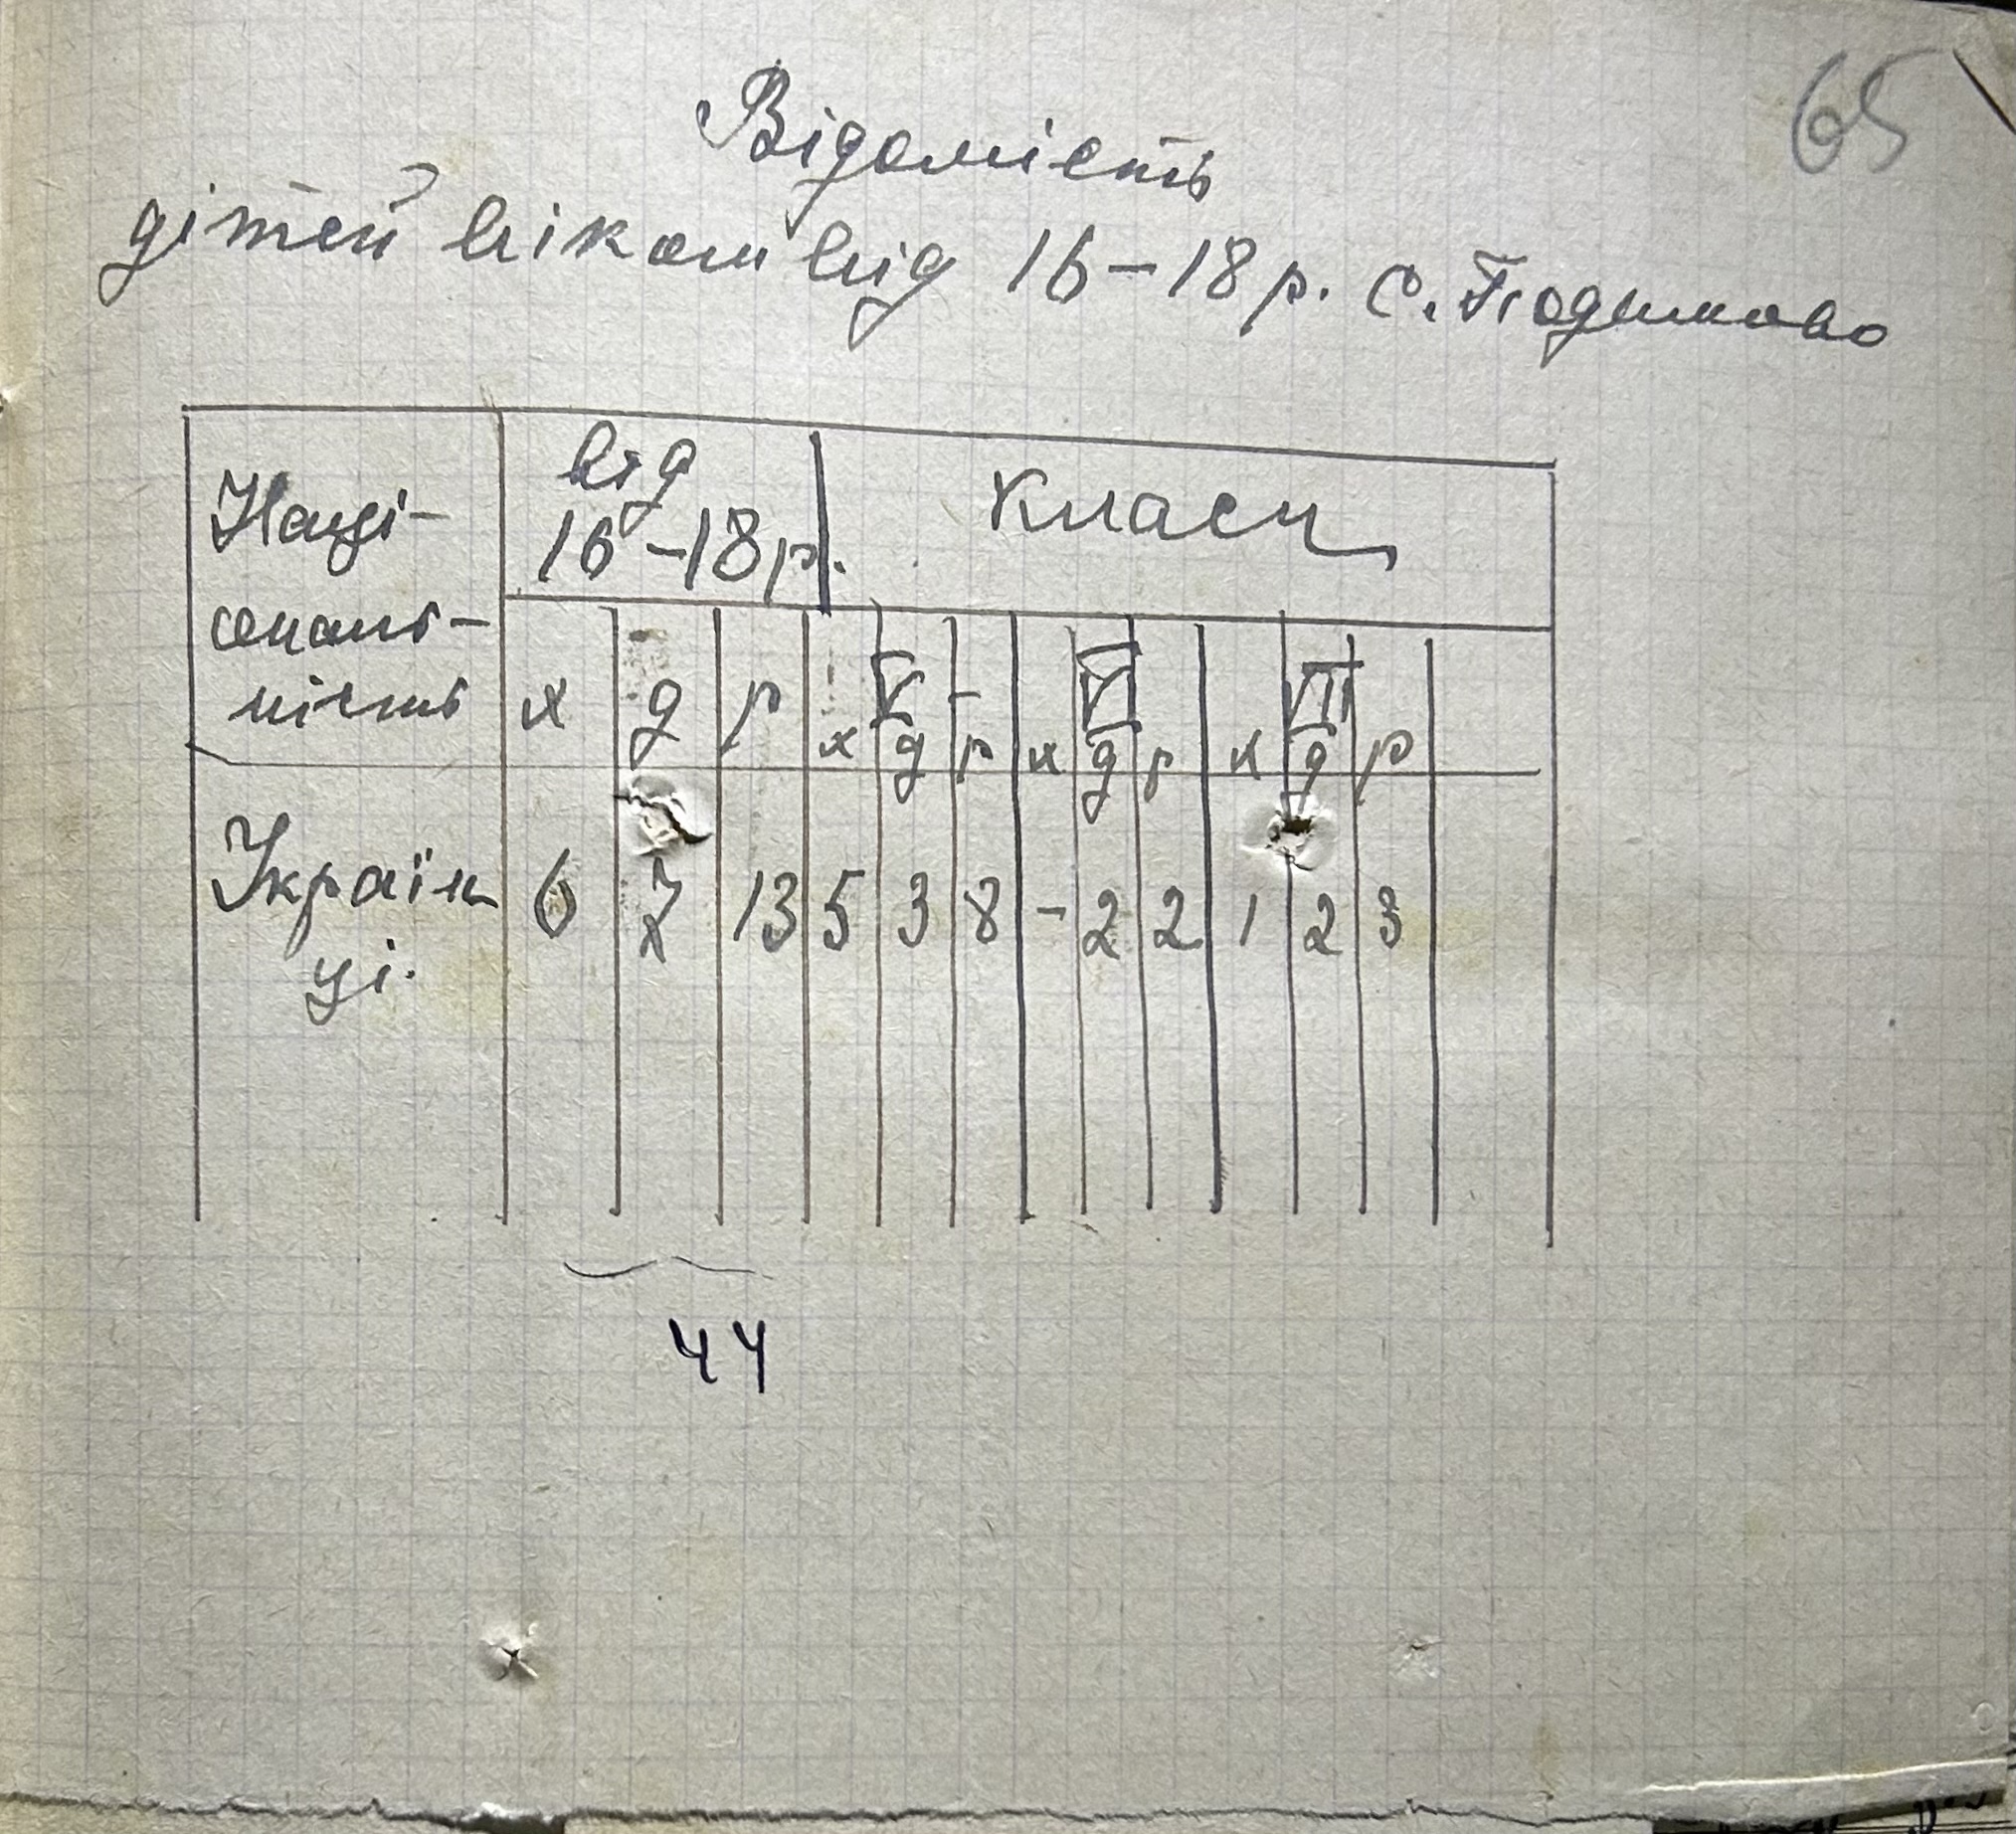 65
Відомість
дітей віком від 16-18 р. с. Подимово
Наці-
ональ-
ність
від
16-18 р.
Класи
х д р V х д р VI х д р VII х д р
Україн
ці. 6 7 13 5 3 8 - 2 2 1 2 3
44